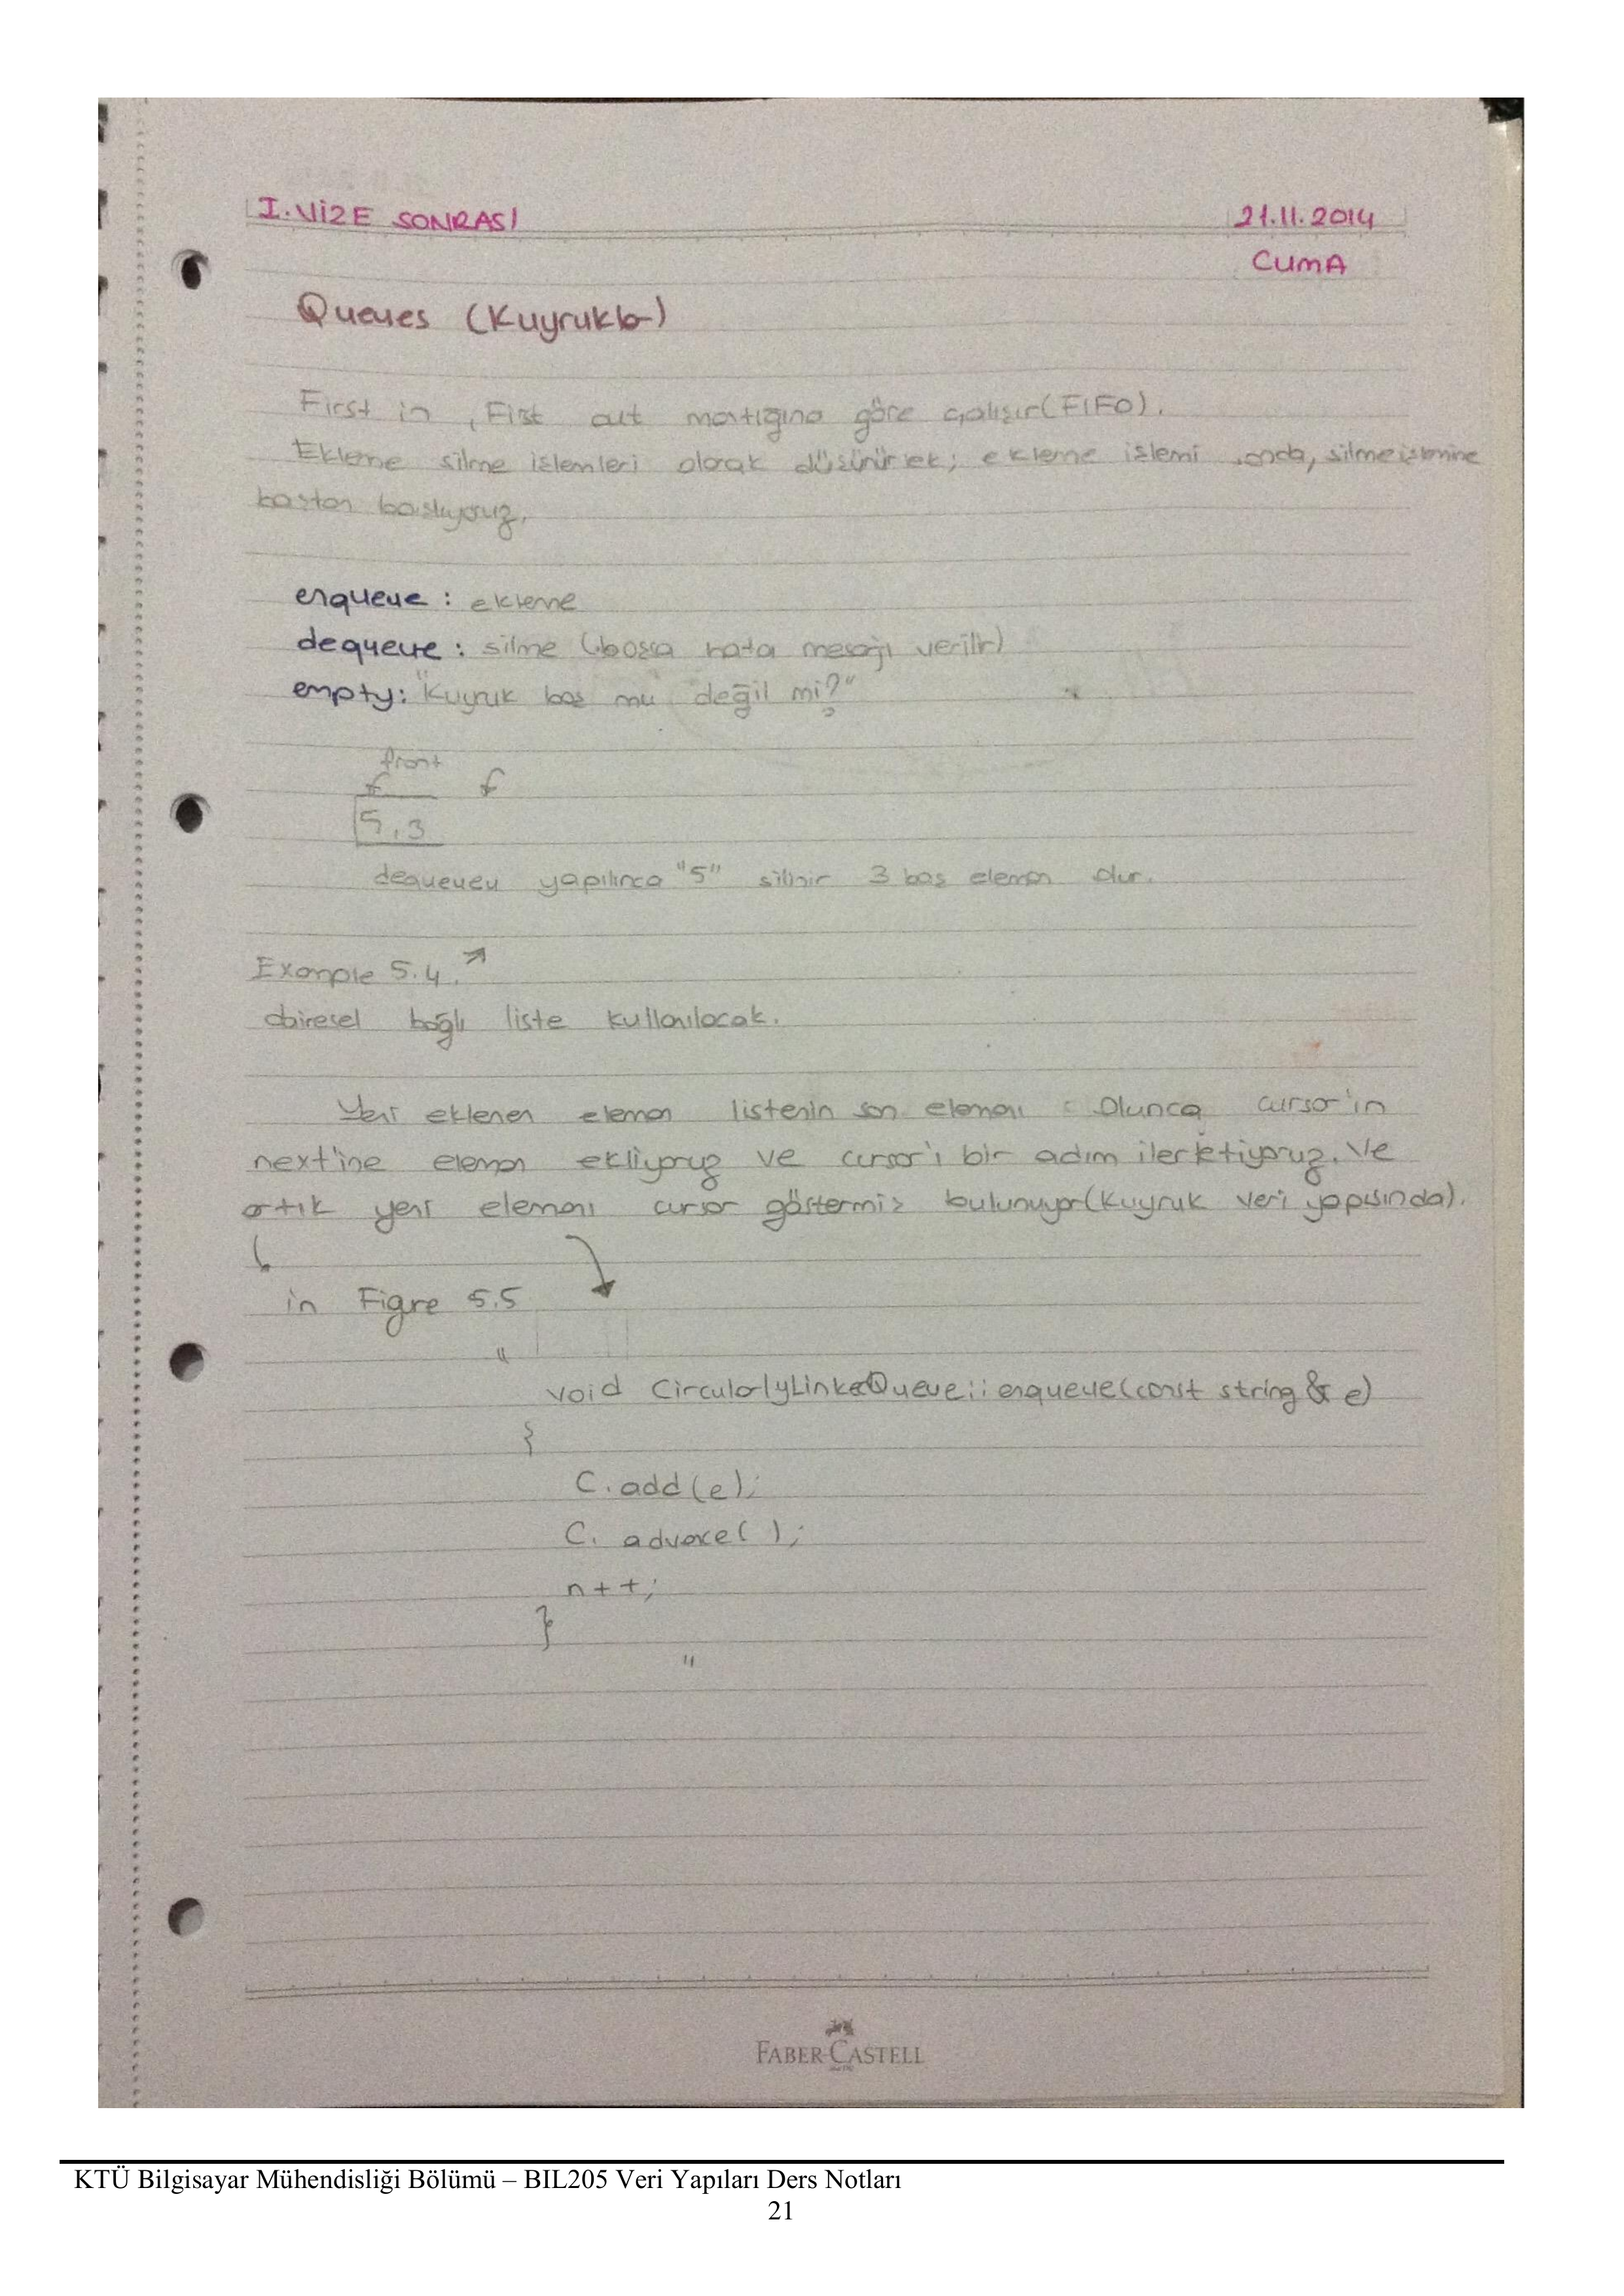 I. VİZE SONRASI
21.11.2014
CUMA
Queues (Kuyrukla)
First in , First out mantığına göre çalışır(FIFO).
Ekleme silme işlemleri olarak düşünürsek; ekleme işlemi sonda, silme işlemine
baştan başlıyoruz.
enqueue : ekleme
dequeue : silme (boşsa hata mesajı verilir)
empty: "Kuyruk boş mu değil mi?"
front
f f
5,3
dequeueu yapılınca "5" silinir 3 baş eleman olur.
Example 5.4.
dairesel bağlı liste kullanılacak.
Yeni eklenen eleman listenin son elemanı olunca cursor'in
next'ine eleman ekliyoruz ve cursor'ı bir adım ilerletiyoruz. Ve
artık yeni elemanı cursor göstermiş bulunuyor(kuyruk veri yapısında).
in Figure 5.5
"
void CircularlyLinkedQueue::enqueue(const string & e)
{
C.add(e);
C. advance( );
n++;
}
"
FABER-CASTELL
KTÜ Bilgisayar Mühendisliği Bölümü – BIL205 Veri Yapıları Ders Notları
21